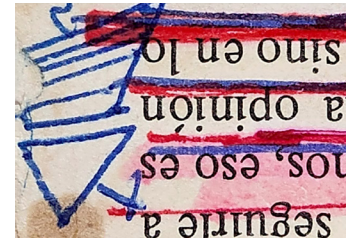 seguirle a
nos, eso es
a opinión
sino en lo